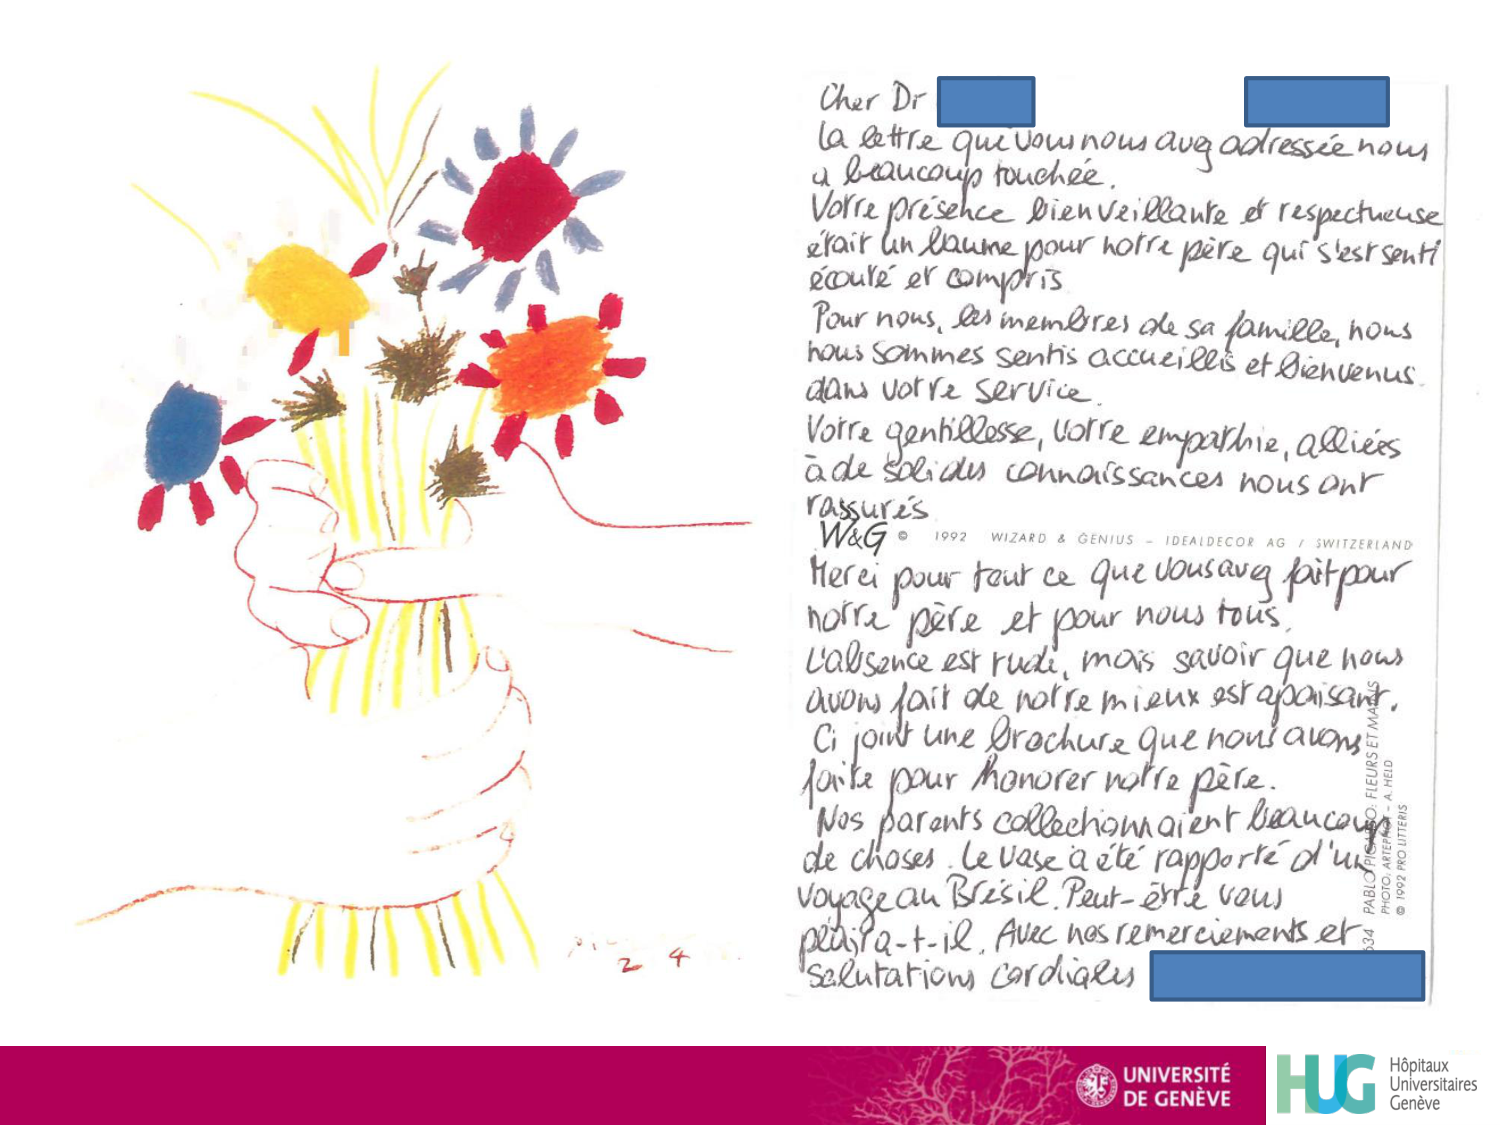 Cher Dr
La lettre que vous nous avez adressée nous
a beaucoup touchée.
Votre présence bienveillante et respectueuse
était un baume pour notre père qui s'est senti
écouté et compris
Pour nous, les membres de sa famille, nous
nous sommes sentis accueillis et bienvenus
dans votre service.
Votre gentillesse, votre empathie, alliées
à de solides connaissances nous ont
rassurés
W&G © 1992 WIZARD & GENIUS – IDEALDECOR AG / SWITZERLAND
Merci pour tout ce que vous avez fait pour
notre père et pour nous tous.
L'absence est rude, mais savoir que nous
avons fait de notre mieux est apaisant.
Ci joint une brochure que nous avons
faite pour honorer notre père.
Nos parents collectionnaient beaucoup
de choses. Le vase a été rapporté d'un
voyage au Brésil. Peut-être vous
plaira-t-il. Avec nos remerciements et
salutations cordiales
634 PABLO PICASSO: FLEURS ET MAINS
PHOTO: ARTEPHOT – A. HELD
© 1992 PRO LITTERIS
2 4
UNIVERSITÉ
DE GENÈVE
HUG
Hôpitaux
Universitaires
Genève